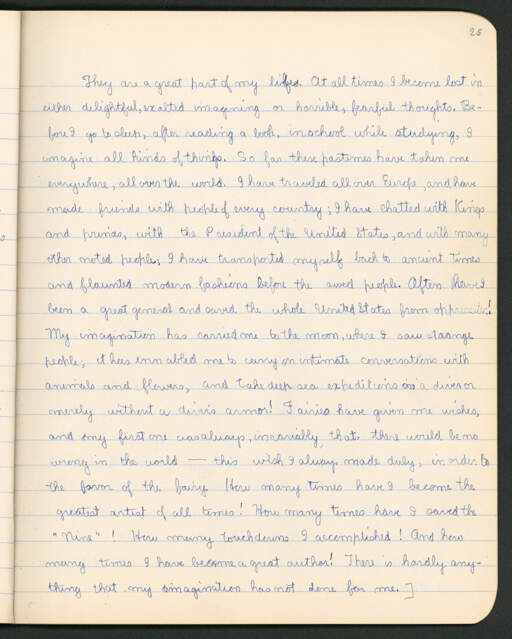 25
They are a great part of my lifes. At all times I become lost in
either delightful, exalted imagining or horrible, fearful thoughts. Be-
fore I go to sleep, after reading a book, in school while studying, I
imagine all kinds of things. So far these pastimes have taken me
everywhere, all over the world. I have traveled all over Europe, and have
made friends with people of every country; I have chatted with Kings
and princes, with the President of the United States, and with many
other noted people; I have transported myself back to ancient times
and flaunted modern fashions before the awed people. Often have I
been a great general and saved the whole United States from oppression!
My imagination has carried me to the moon, where I saw strange
people; it has ennabled me to carry on intimate conversations with
animals and flowers, and take deep sea expeditions as a diver or
merely without a diver's armor! Fairies have given me wishes,
and my first one was always, invariably, that there would be no
wrong in the world — this wish I always made duly, in order to
the favor of the fairy. How many times have I become the
greatest artist of all times! How many times have I saved the
"Nine"! How many touchdowns I accomplished! And how
many times I have become a great author! There is hardly any-
thing that my imagination has not done for me. ]